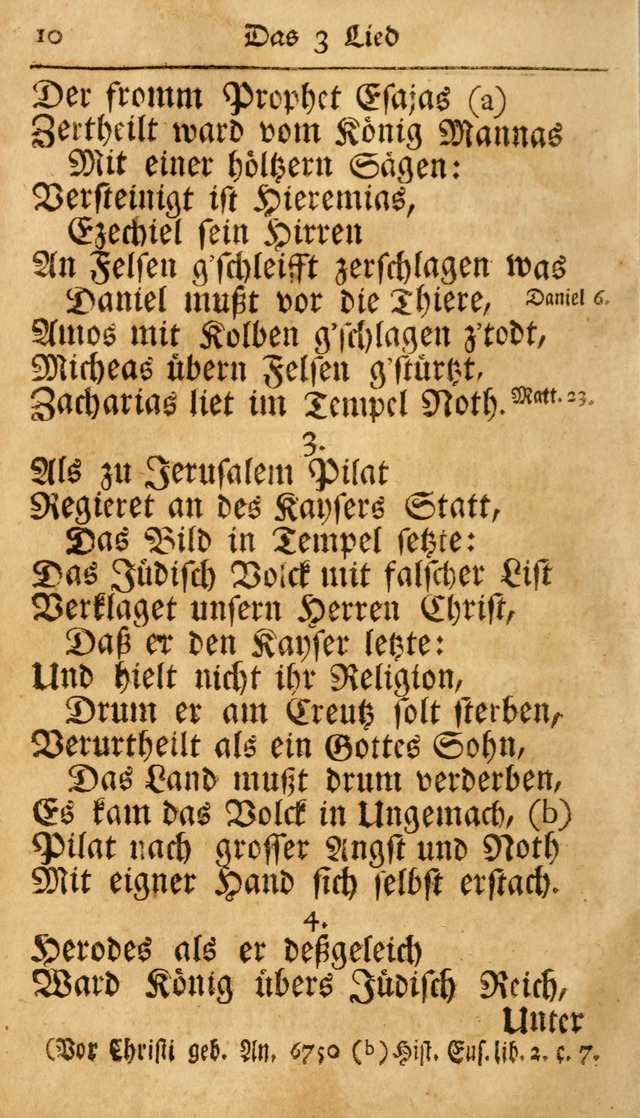 10 Das 3 Lied
Der fromm Prophet Esajas (a)
Zertheilt ward vom König Mannas
Mit einer höltzern Sägen:
Versteinigt ist Hieremias,
Ezechiel sein Hirren
An Felsen g'schleifft zerschlagen was
Daniel mußt vor die Thiere, Daniel 6.
Amos mit Kolben g'schlagen z'todt,
Micheas übern Felsen g'stürtzt,
Zacharias liet im Tempel Noth. Matt. 23.
3.
Als zu Jerusalem Pilat
Regieret an des Kaysers Statt,
Das Bild in Tempel setzte:
Das Jüdisch Volck mit falscher List
Verklaget unsern Herren Christ,
Daß er den Kayser letzte:
Und hielt nicht ihr Religion,
Drum er am Creutz solt sterben,
Verurtheilt als ein Gottes Sohn,
Das Land mußt drum verderben,
Es kam das Volck in Ungemach, (b)
Pilat nach grosser Angst und Noth
Mit eigner Hand sich selbst erstach.
4.
Herodes als er deßgeleich
Ward König übers Jüdisch Reich,
Unter
(Vor Christi geb. An. 6750 (b) Hist. Eus. lib. 2. c. 7.